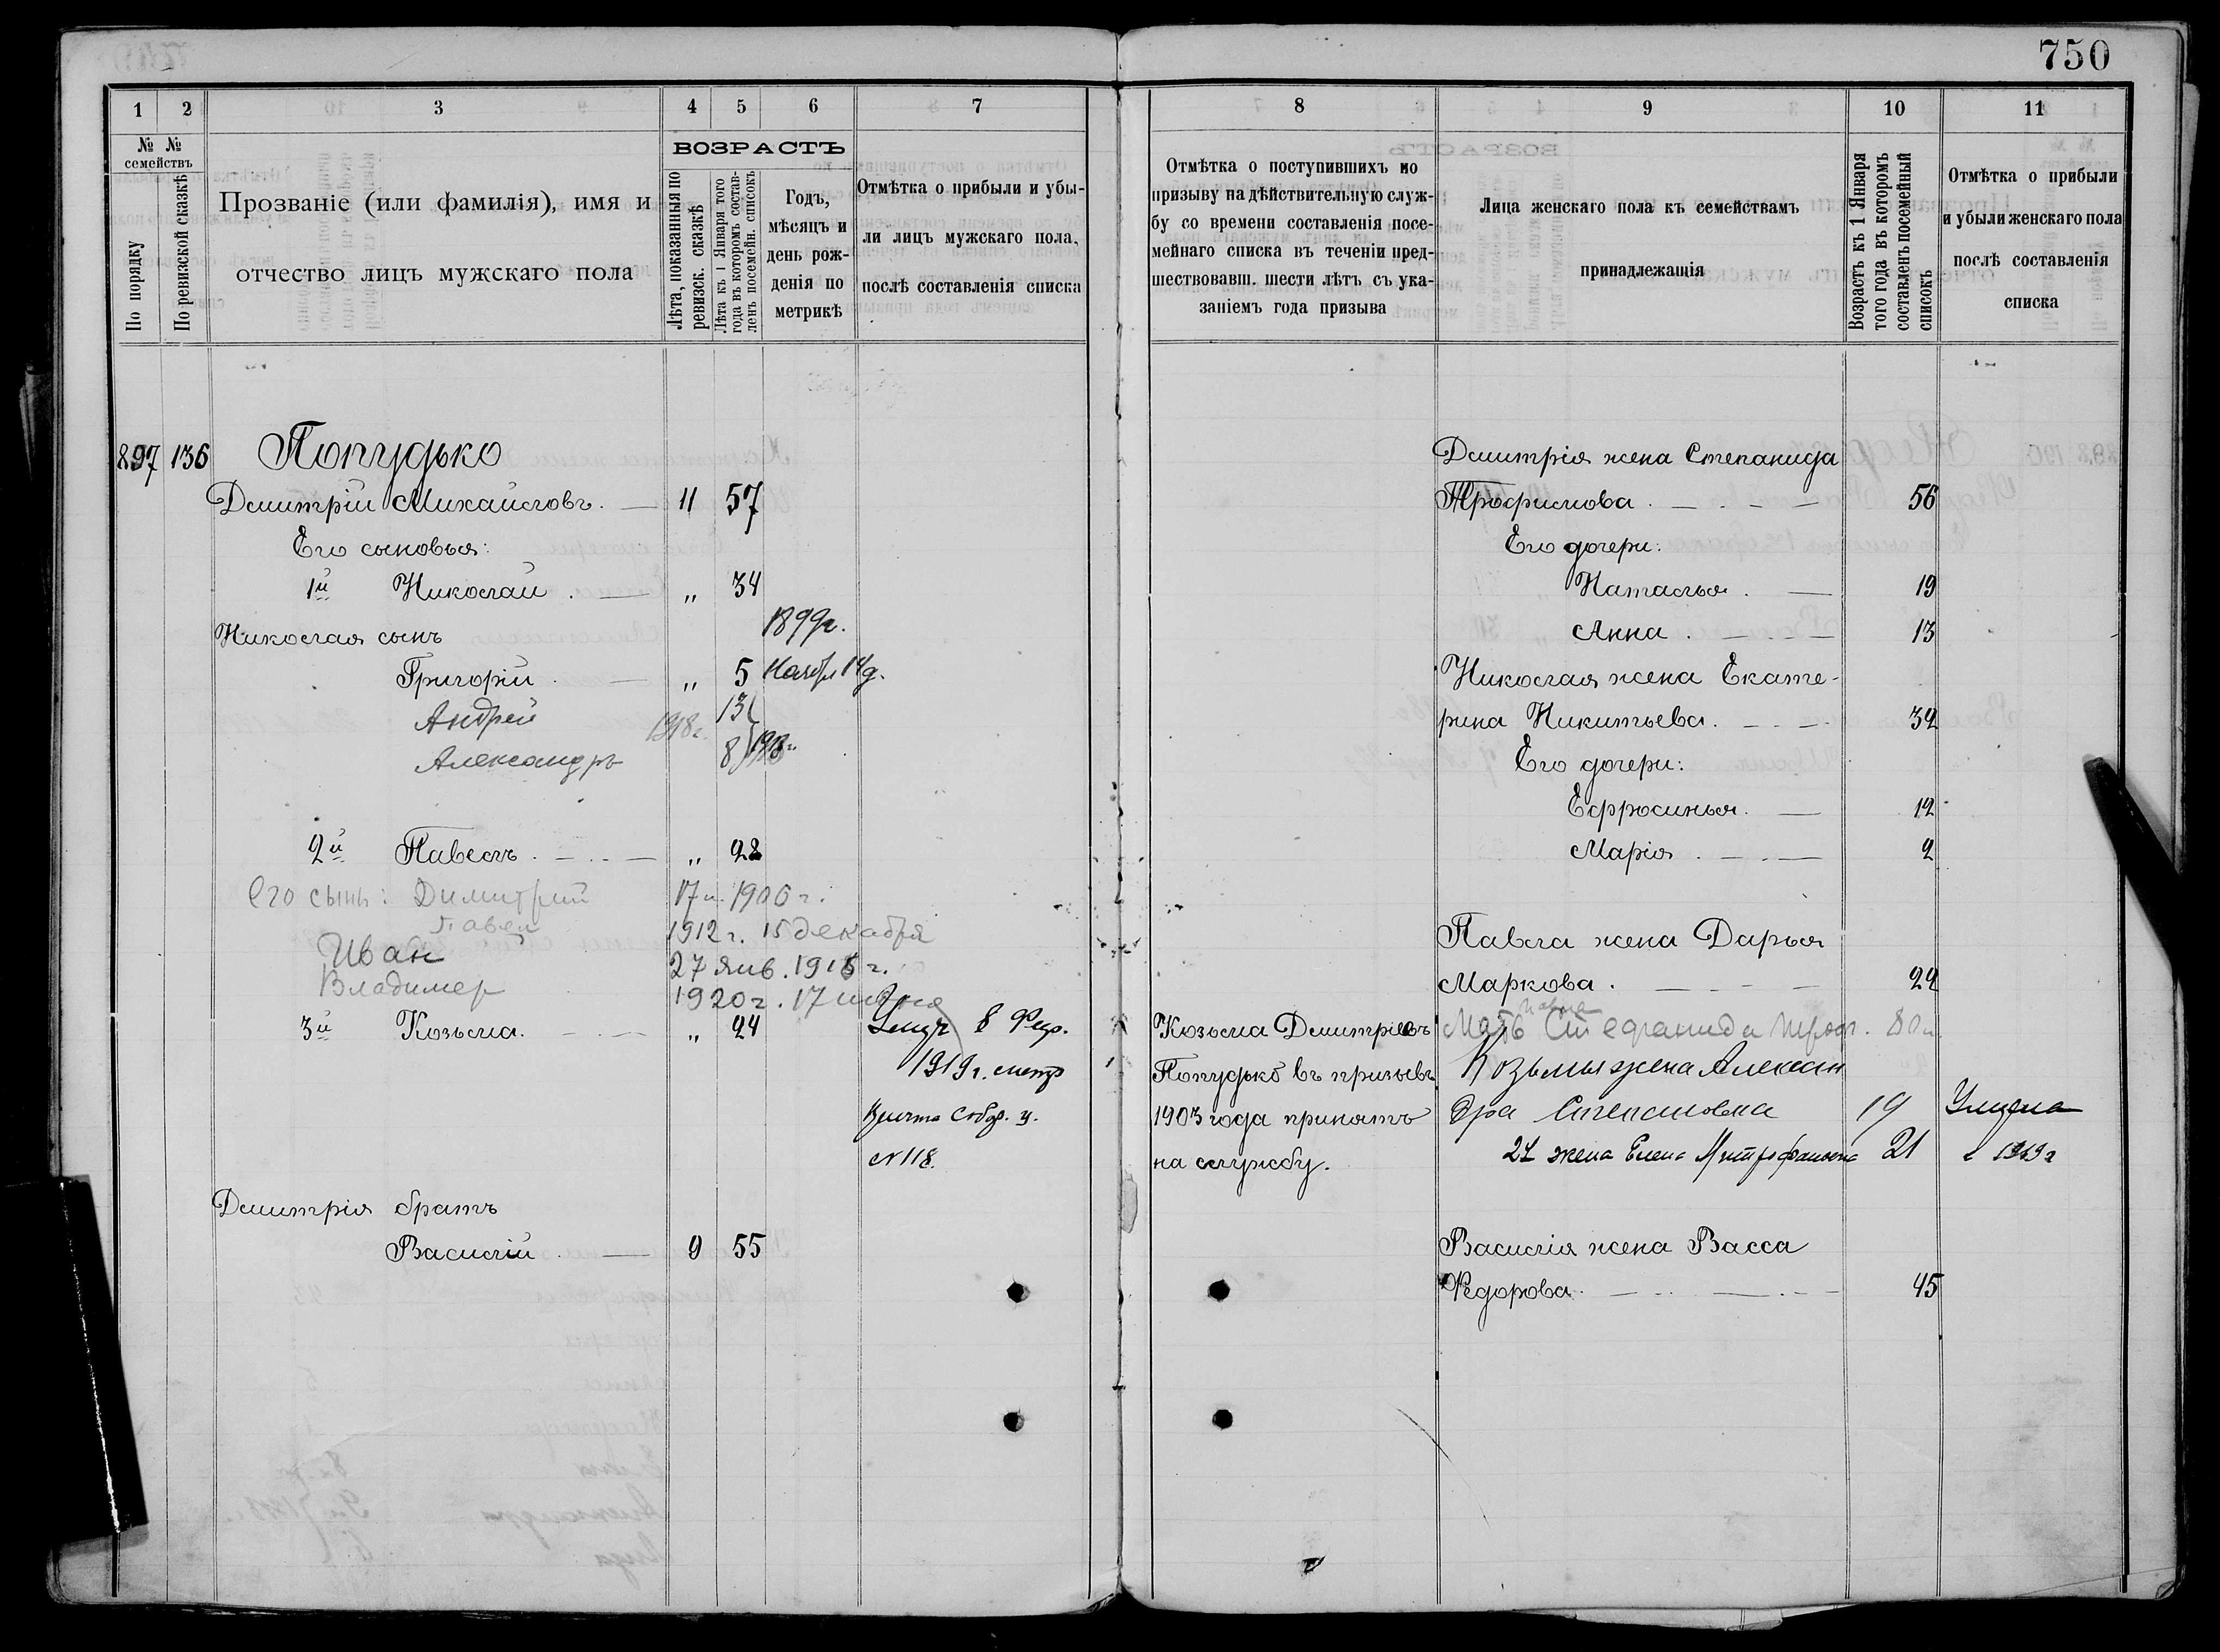 750
1 2 3 4 5 6 7
№ № семействъ
По порядку
По ревизской сказкѣ
Прозваніе (или фамилія), имя и
отчество лицъ мужскаго пола
ВОЗРАСТЪ
Лѣта, показанныя по
ревизск. сказкѣ
Лѣта къ 1 Января того
года въ которомъ состав-
ленъ посемейн. списокъ
Годъ,
мѣсяцъ и
день рож-
денія по
метрикѣ
Отмѣтка о прибыли и убы-
ли лицъ мужскаго пола,
послѣ составленія списка
897 136 Попудько
Дмитрій Михайловъ. — 11 57
Его сыновья:
1й Николай . — „ 34
Николая сынъ 1899г.
Григорій . — „ 5 Ноябр 14д.
Андрей 1918г. 13
Александръ 8 1913г.
2й Павелъ . — . . — „ 28
Его сынъ: Димитрий 17 1906 г.
Павел 1912 г. 15 декабря
Иван 27 янв. 1915 г.
Владимер 1920 г. 17 июня
3й Козьма. — . . — „ 24 Умеръ 8 Фев.
1919 г. метр
Собор. ц.
№ 118.
Дмитрія братъ
Василій . — 9 55
8 9 10 11
Отмѣтка о поступившихъ по
призыву на дѣйствительную служ-
бу со времени составленія посе-
мейнаго списка въ теченіи пред-
шествовавш. шести лѣтъ съ ука-
заніемъ года призыва
Лица женскаго пола къ семействамъ
принадлежащія
Возрастъ къ 1 Января
того года въ которомъ
составленъ посемейный
списокъ
Отмѣтка о прибыли
и убыли женскаго пола
послѣ составленія
списка
Дмитрія жена Степанида
Трофимова . — . — — 56
Его дочери:
Наталья . — 19
Анна . — . . — 13
Николая жена Екате-
рина Никитьева. — . — 32
Его дочери:
Ефросинья. — 12
Марія . — . — 2
Павла жена Дарья
Маркова . — — . — 22
Козьма Дмитріевъ
Попудько въ призывъ
1903 года принятъ
на службу.
Павла
Мать Стефанида Троф. 80 л.
Козьмы жена Алексан
дра Степановна 19 Умерла
2я жена Елена Митрофановна 21 1919 г
Василія жена Васса
Федорова. — . . — . . — 45